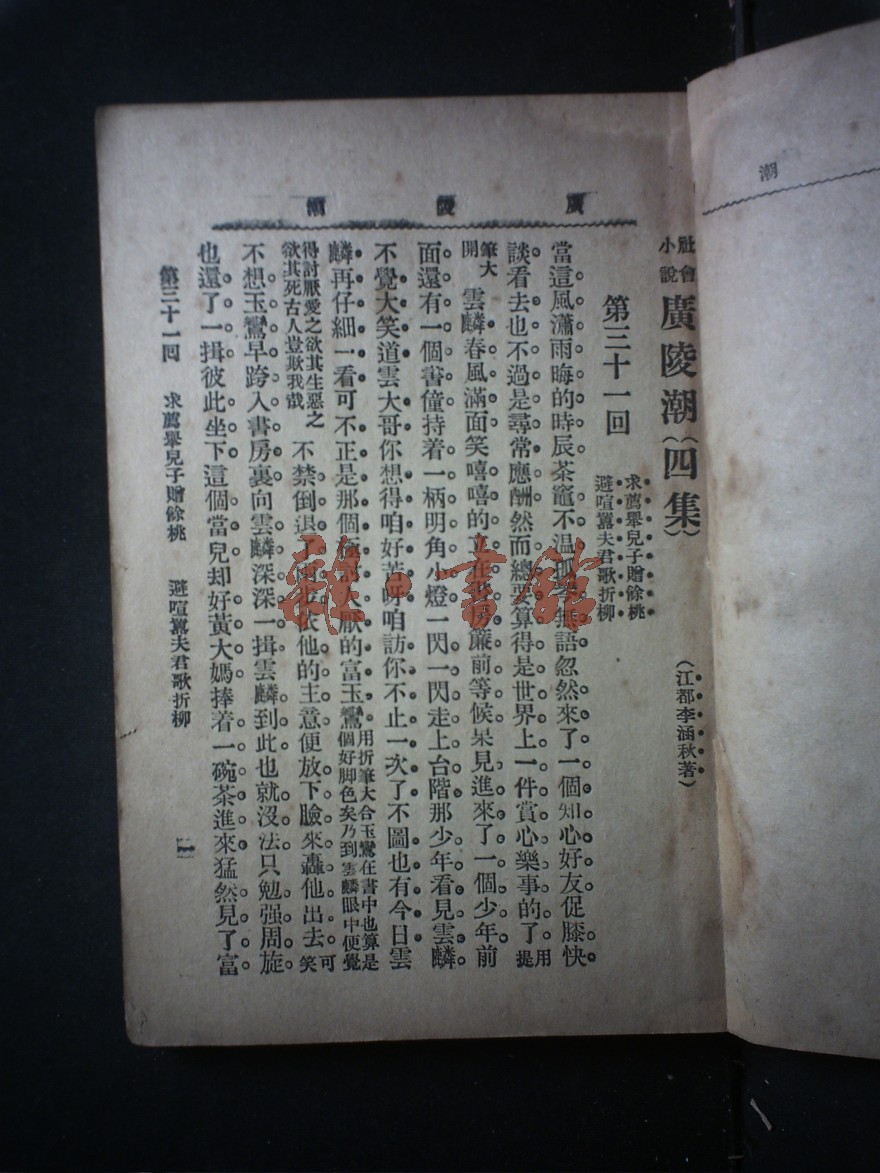 廣陵潮
潮
社會小說 廣陵潮（四集） （江都李涵秋著）
第三十一回 求薦舉兒子贈餘桃
避喧囂夫君歌折柳
當這風瀟雨晦的時辰茶竈不温無語忽然來了一個知心好友促膝快
談看去也不過是尋常應酬然而總要算得是世界上一件賞心樂事的了用提
筆大開 雲麟春風滿面笑嘻嘻的立在書房簾前等候果見進來了一個少年前
面還有一個書僮持着一柄明角小燈一閃一閃走上台階那少年看見雲麟
不覺大笑道雲大哥你想得咱好苦呀咱訪你不止一次了不圖也有今日雲
麟再仔細一看可不正是那個厭的富玉鸞用折筆大合玉鸞在書中也算是個好脚色矣乃到雲麟眼中便覺
得討厭愛之欲其生惡之欲其死古人豈欺我哉 不禁倒退了兩步依他的主意便放下臉來轟他出去可笑
不想玉鸞早跨入書房裏向雲麟深深一揖雲麟到此也就沒法只勉强周旋
也還了一揖彼此坐下這個當兒却好黃大媽捧着一碗茶進來猛然見了富
第三十一回 求薦舉兒子贈餘桃 避喧囂夫君歌折柳 一
雜書館